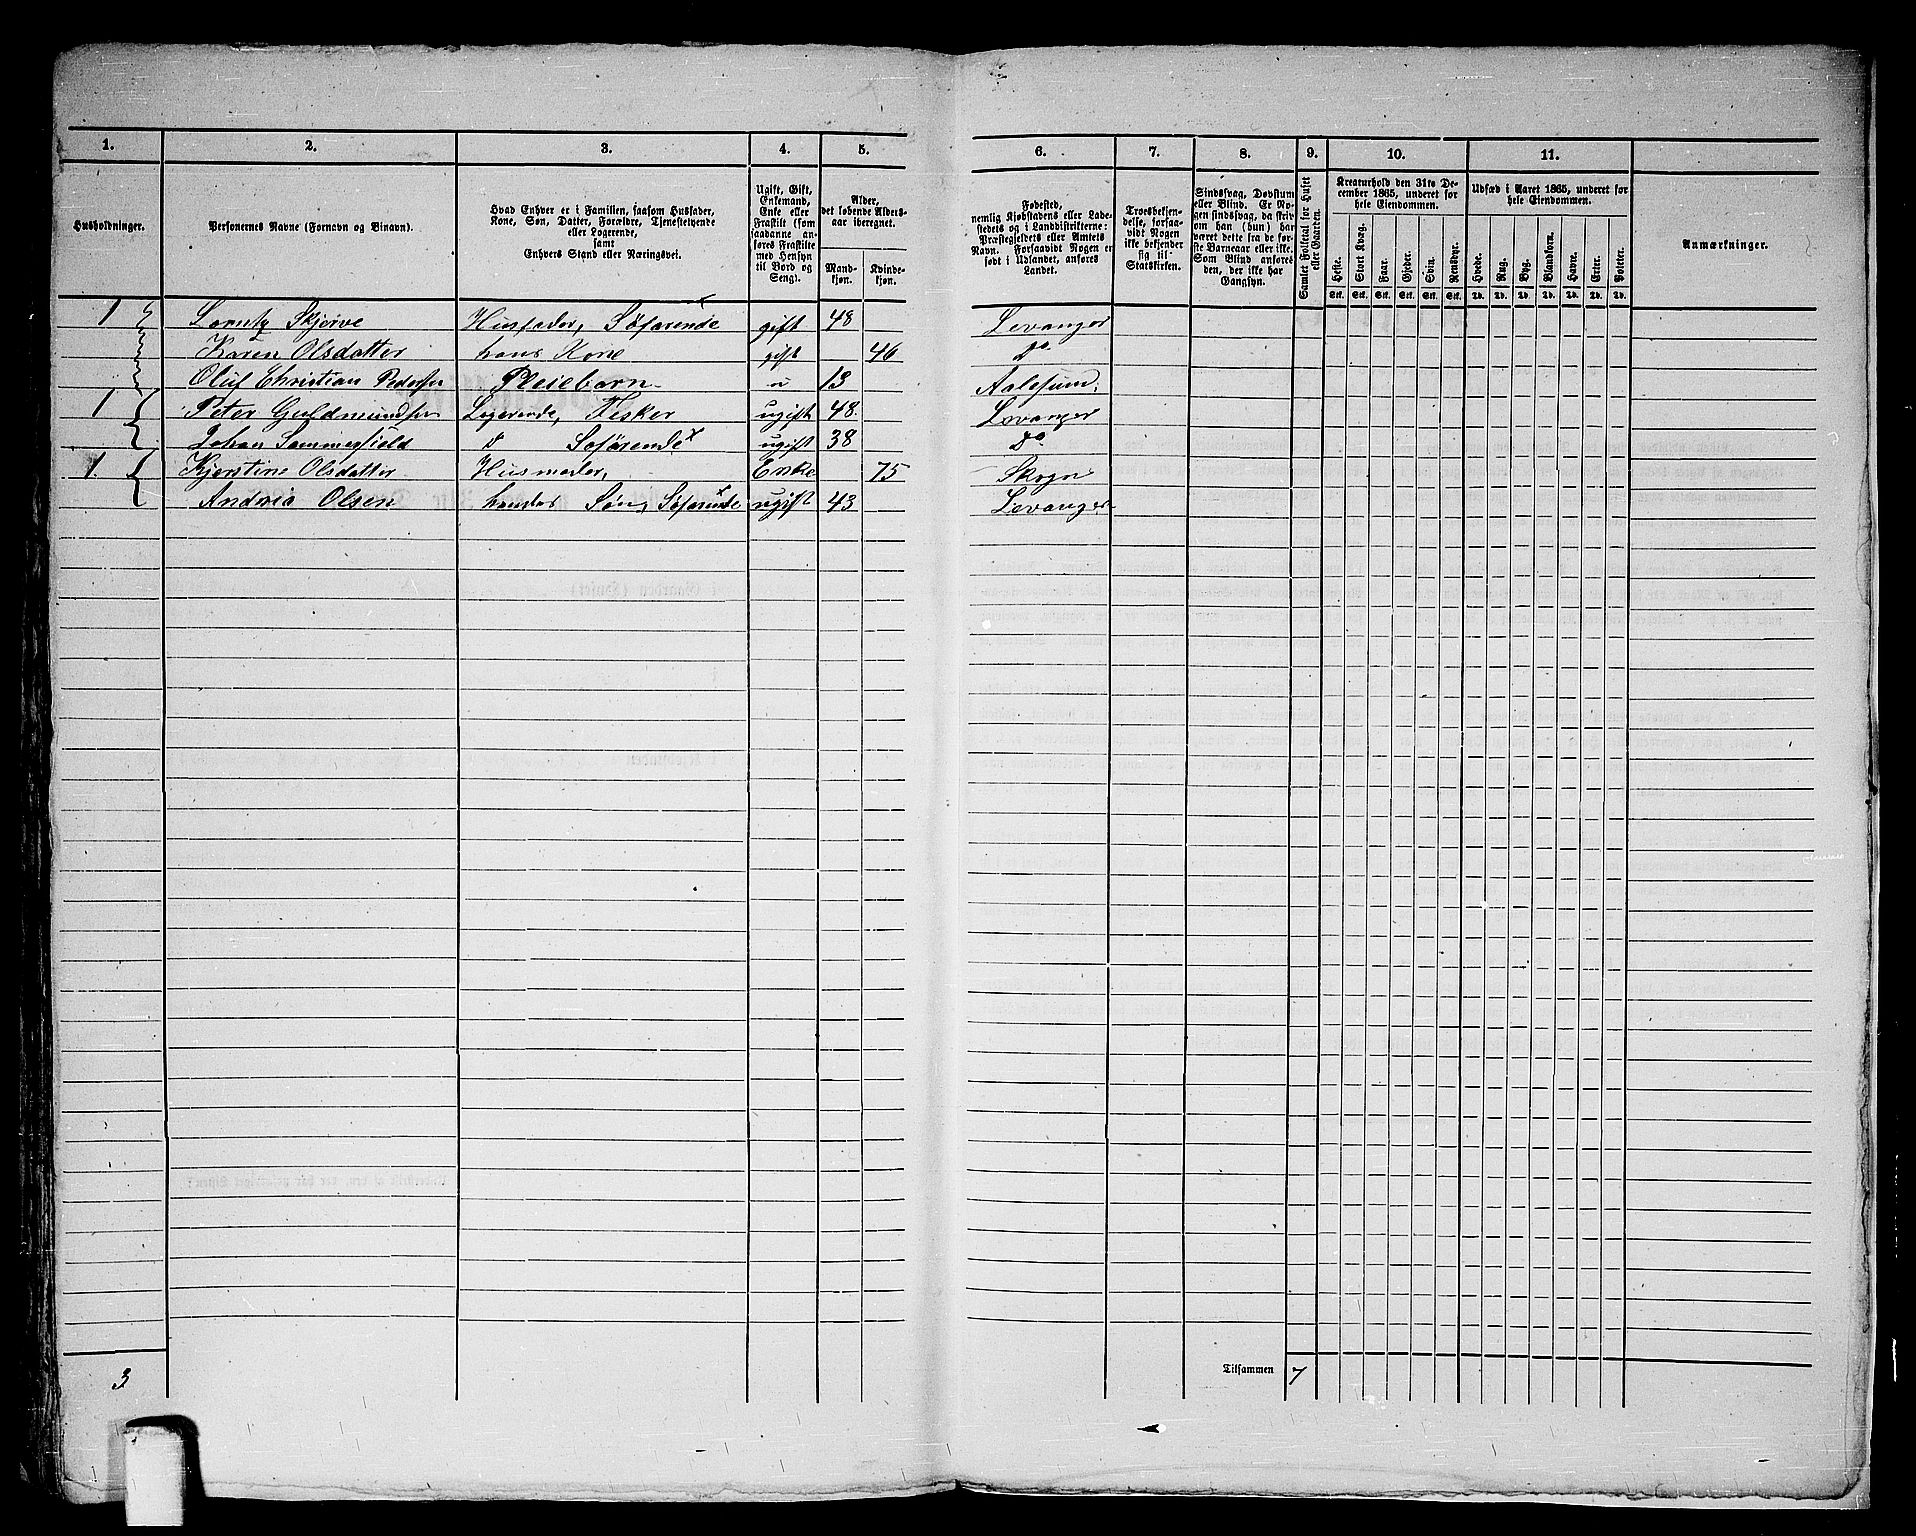 1. 2. 3. 4. 5. 6. 7. 8. 9. 10. 11.
Husholdninger.
Personernes Navne (Fornavn og Binavn).
Hvad Enhver er i Familien, saasom Husfader,
Kone, Søn, Datter, Forældre, Tjenestetyende
eller Logerende,
samt
Enhvers Stand eller Næringsvei.
Ugift, Gift,
Enkemand,
Enke eller
Fraskilt (som
saadanne an-
føres Fraskilte
med Hensyn
til Bord og
Seng).
Alder,
det løbende Alders-
aar iberegnet.
Mand-
kjøn.
Kvinde-
kjøn.
Fødested,
nemlig Kjøbstadens eller Lade-
stedets og i Landdistrikterne:
Præstegjeldets eller Amtets
Navn. Forsaavidt Nogen er
født i Udlandet, anføres
Landet.
Troesbekjen-
delse, forsaa-
vidt Nogen
ikke bekjender
sig til
Statskirken.
Sindssvag, Døvstum
eller Blind. Er No-
gen sindssvag, da skri-
ves om han (hun) har
været dette fra de før-
ste Barneaar eller ikke.
Som Blind anføres
den, der ikke har
Gangsyn.
Samlet Folketal for Huset
eller Gaarden.
Kreaturhold den 31te De-
cember 1865, underet for
hele Eiendommen.
Heste. Stort Kvæg. Faar. Gjeder. Svin. Rensdyr.
Stk. Stk. Stk. Stk. Stk. Stk.
Udsæd i Aaret 1865, underet for
hele Eiendommen.
Hvede. Rug. Byg. Blandkorn. Havre. Erter. Poteter.
Td. Td. Td. Td. Td. Td. Td.
Anmærkninger.
1 Lorentz Skjerve Husfader, Söfarende gift 48 Levanger
Karen Olsdatter hans Kone gift 46 do
Oluf Christian Pedersen Pleiebarn u 13 Aalesund,
1 Peter Guldmundsen Logerende, Fisker ugift 48. Levanger
Johan Sommerfield d Söfarende ugift 38 do
1. Kjerstine Olsdatter Husmoder, Enke 75 Skogn
Andreas Olsen hendes Søn, Söfarende ugift 43 Levanger
3 Tilsammen 7